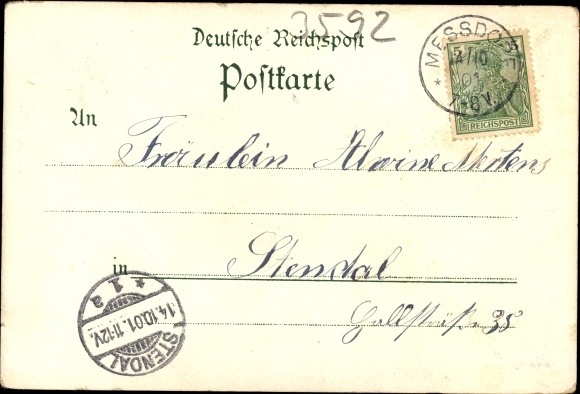 3592
Deutsche Reichspost
Postkarte
MESSDORF
14/10
01
7-8V.
5
REICHSPOST
An
Fräulein Alwine Mertens
in Stendal
Hallstraße 35
* 1 *
a
14.10.01.11-12V.
STENDAL